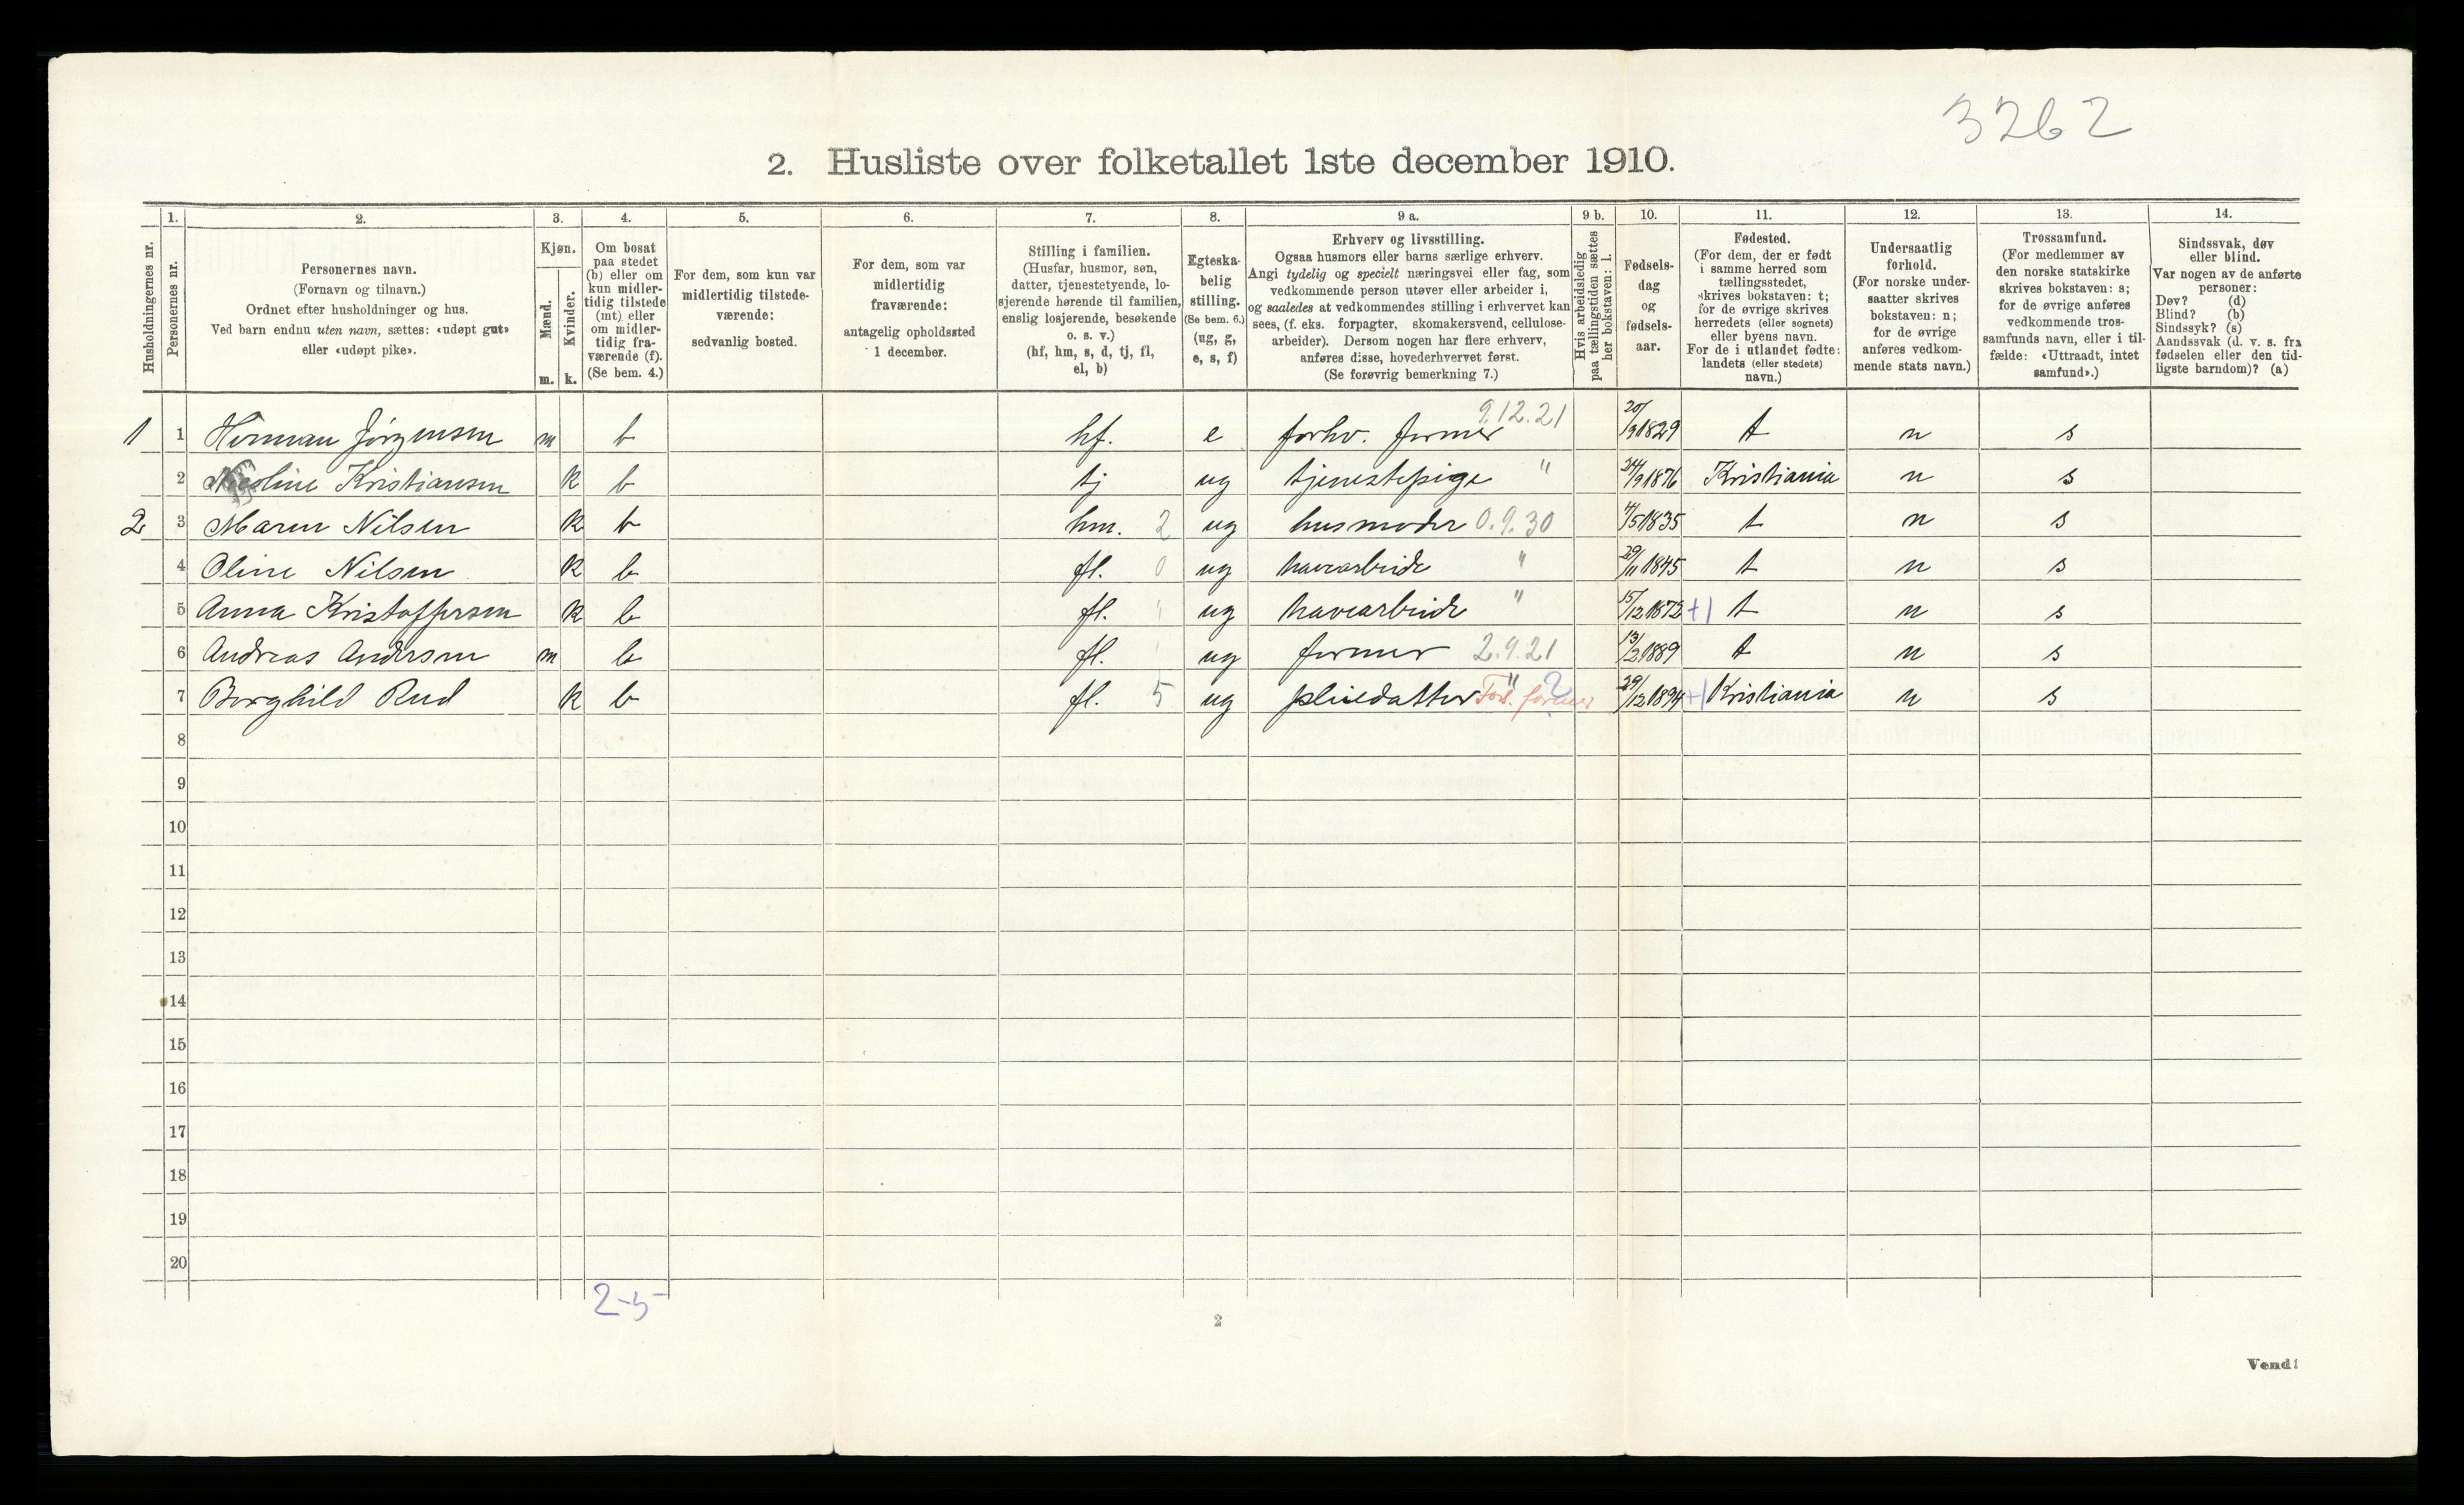 3262
2. Husliste over folketallet 1ste december 1910.
Husholdningernes nr.
1. Personernes nr.
2. Personernes navn.
(Fornavn og tilnavn.)
Ordnet efter husholdninger og hus.
Ved barn endnu uten navn, sættes: «udøpt gut»
eller «udøpt pike».
3. Kjøn.
Mænd. m.
Kvinder. k.
4. Om bosat
paa stedet
(b) eller om
kun midler-
tidig tilstede
(mt) eller
om midler-
tidig fra-
værende (f).
(Se bem. 4.)
5. For dem, som kun var
midlertidig tilstede-
værende:
sedvanlig bosted.
6. For dem, som var
midlertidig
fraværende:
antagelig opholdssted
1 december.
7. Stilling i familien.
(Husfar, husmor, søn,
datter, tjenestetyende, lo-
sjerende hørende til familien,
enslig losjerende, besøkende
o. s. v.)
(hf, hm, s, d, tj, fl,
el, b)
8. Egteska-
belig
stilling.
(Se bem. 6.)
(ug, g,
e, s, f)
9 a. Erhverv og livsstilling.
Ogsaa husmors eller barns særlige erhverv.
Angi tydelig og specielt næringsvei eller fag, som
vedkommende person utøver eller arbeider i,
og saaledes at vedkommendes stilling i erhvervet kan
sees, (f. eks. forpagter, skomakersvend, cellulose-
arbeider). Dersom nogen har flere erhverv,
anføres disse, hovederhvervet først.
(Se forøvrig bemerkning 7.)
9 b. Hvis arbeidsledig
paa tællingstiden sættes
her bokstaven: l.
10. Fødsels-
dag
og
fødsels-
aar.
11. Fødested.
(For dem, der er født
i samme herred som
tællingsstedet,
skrives bokstaven: t;
for de øvrige skrives
herredets (eller sognets)
eller byens navn.
For de i utlandet fødte:
landets (eller stedets)
navn.)
12. Undersaatlig
forhold.
(For norske under-
saatter skrives
bokstaven: n;
for de øvrige
anføres vedkom-
mende stats navn.)
13. Trossamfund.
(For medlemmer av
den norske statskirke
skrives bokstaven: s;
for de øvrige anføres
vedkommende tros-
samfunds navn, eller i til-
fælde: «Uttraadt, intet
samfund».)
14. Sindssvak, døv
eller blind.
Var nogen av de anførte
personer:
Døv? (d)
Blind? (b)
Sindssyk? (s)
Aandssvak (d. v. s. fra
fødselen eller den tid-
ligste barndom)? (a)
1 1 Herman Jörgensen m b hf. e forhv. former 9.12.21 20/9 1829 t n s
2 Nicoline Kristiansen k b tj ug tjenestepige " 24/9 1876 Kristiania n s
2 3 Maren Nilsen k b hm. 2 ug husmoder 0.9.30 4/5 1835 t n s
4 Oline Nilsen k b fl. 0 ug havearbeide " 29/11 1845 t n s
5 Anna Kristoffersen k b fl. " ug havearbeide " 15/12 1872 +1 t n s
6 Andreas Andersen m b fl. ug former 2.9.21 13/2 1889 t n s
7 Borghild Rud k b fl. 5 ug pleiedatter " Fors. former ? 29/12 1894 +1 Kristiania n s
8
9
10
11
12
13
14
15
16
17
18
19
20
2-5
2
Vend!